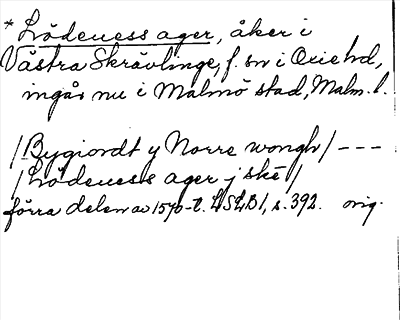 * Lödeness ager, åker i
Västra Skrävlinge, f. sn i Oxie hd,
ingår nu i Malmö stad, Malm. l.
/Bygiordt y Norre wongh/ ---
/Lödeness ager j ske/
förra delen av 1570-t. LSLB1, s. 392. orig.